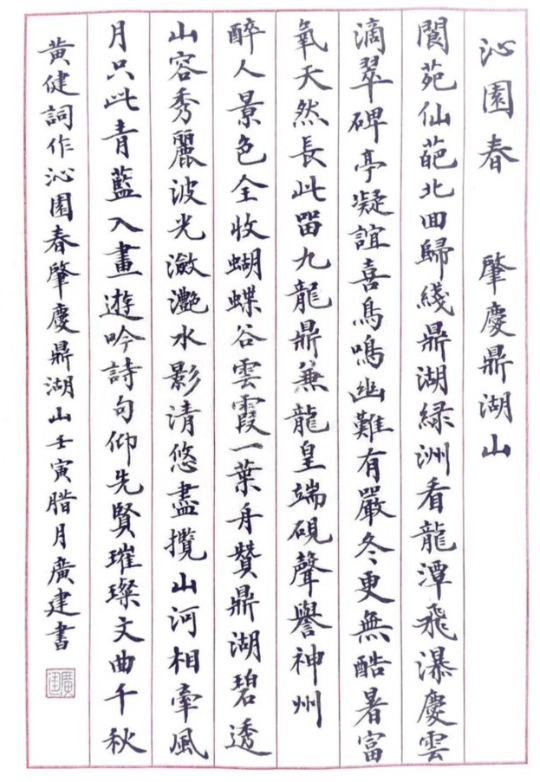 沁園春 肇慶鼎湖山
閬苑仙葩北囬歸綫鼎湖綠洲看龍潭飛瀑慶雲
滴翠碑亭凝誼喜鳥鳴幽難有嚴冬更無酷暑富
氧天然長此㽞九龍鼎兼龍皇端硯聲譽神州
醉人景色全收蝴蝶谷雲霞一葉舟贊鼎湖碧透
山容秀麗波光瀲灧水影清悠盡攬山河相牽風
月只此青藍入畫遊吟詩句仰先賢璀璨文曲千秋
黃健詞作沁園春肇慶鼎湖山壬寅腊月廣建書
廣建